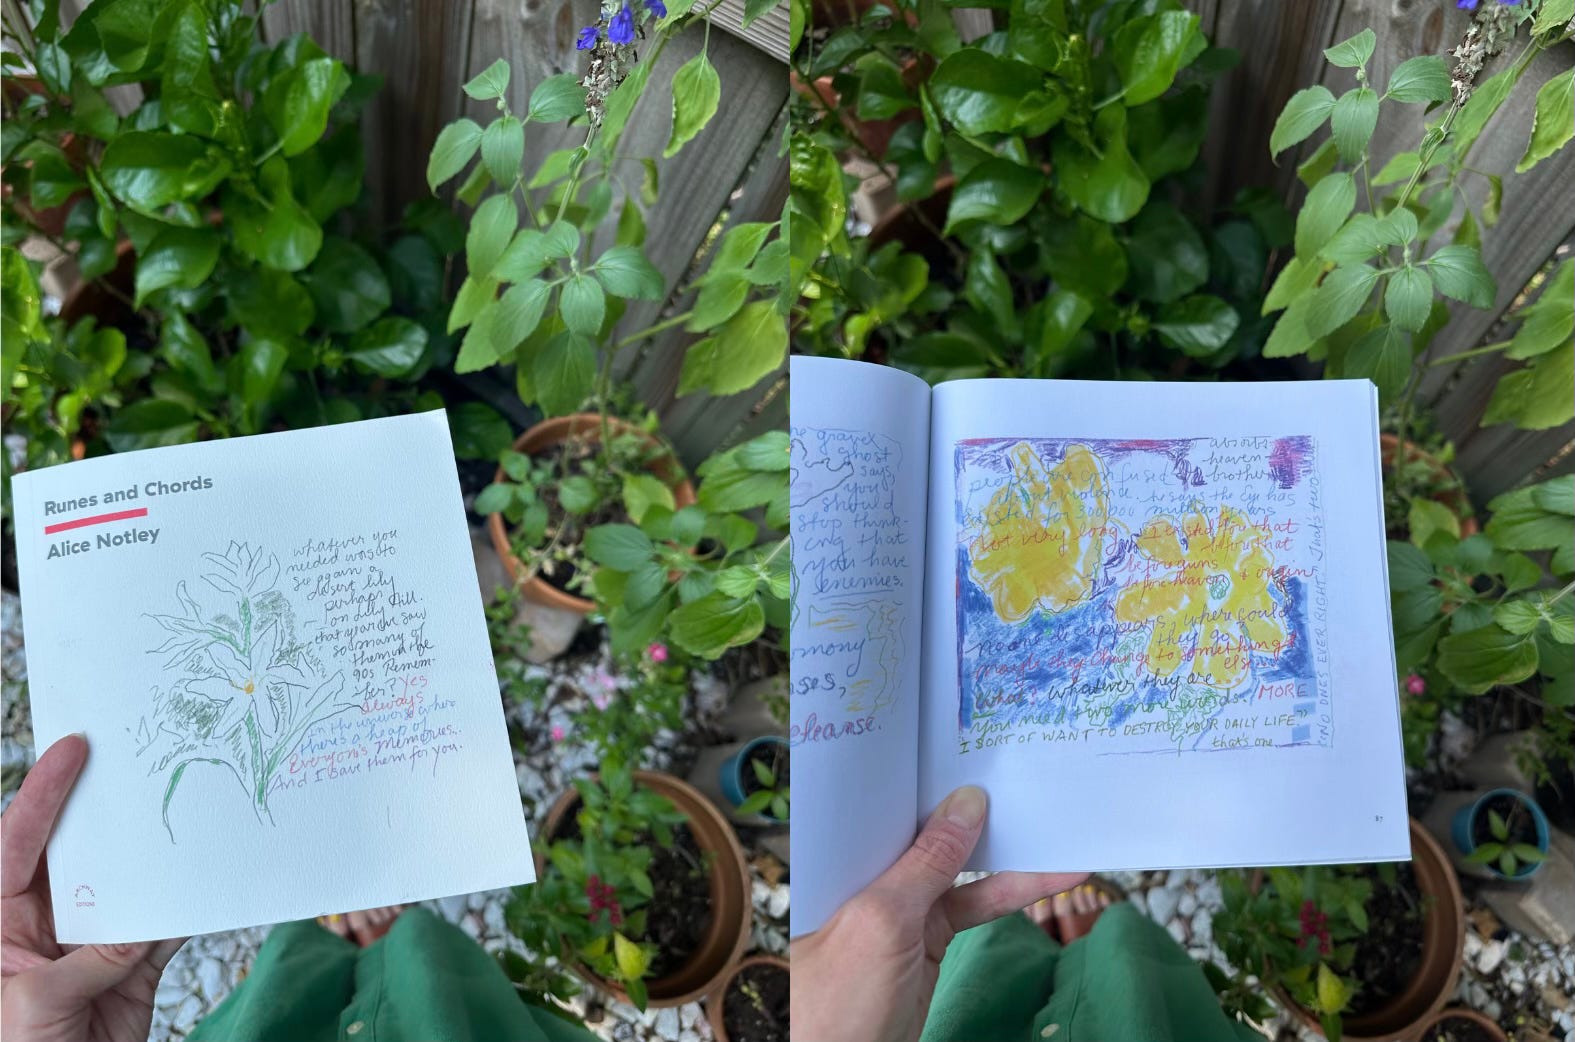 Runes and Chords
Alice Notley
whatever you
needed was to
see again a
desert lily
perhaps
on Lilly Hill.
that year we saw
so many of
them in the
90s Remem-
ber? Yes
Always
in the universe where
there's a heap of
Everyone's Memories.
And I save them for you.
EDITIONS
gravel
ghost
says
you
should
stop think-
ing that
you have
enemies.
cleanse.
absorbs
heaven
brother
people are confused
about violence. he says the Eye has
existed for 300,000 million years
Not very long. I existed for that
before that
before guns
before heaven & origin
people disappears, where could
they go
maybe they change to something
else
What? whatever they are
You need two more words. MORE
I SORT OF WANT TO DESTROY YOUR DAILY LIFE"
that's one
"NO ONES EVER RIGHT" That's two
87